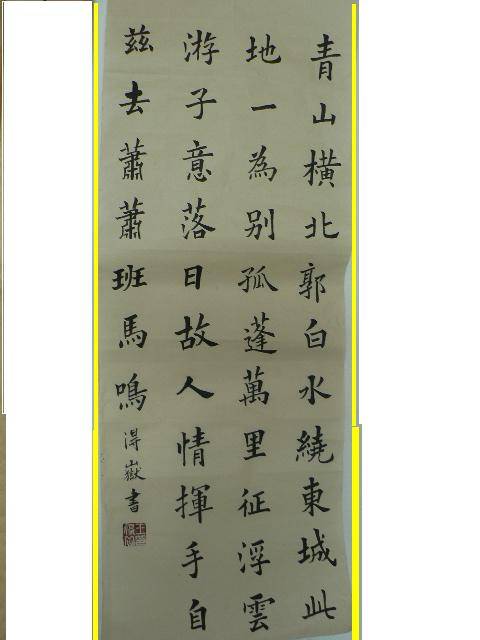 青山橫北郭白水繞東城此
地一為別孤蓬萬里征浮雲
游子意落日故人情揮手自
茲去蕭蕭班馬鳴得嶽書